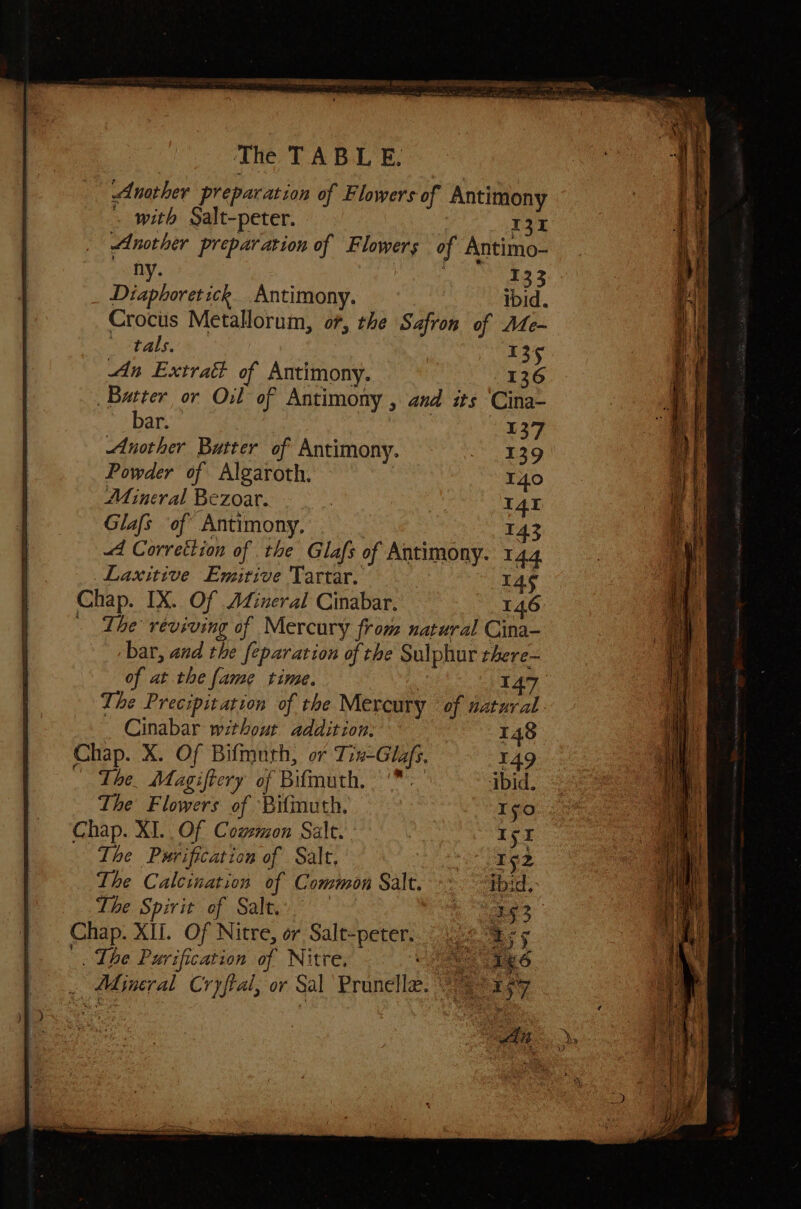 The TABLE.
Another preparation of Flowers of Antimony
with Salt-peter. 131
Another preparation of Flowers of Antimo-
ny. 133
Diaphoretick Antimony. ibid.
Crocus Metallorum, or, the Safron of Me-
tals. 135
An Extract of Antimony. 136
Butter or Oil of Antimony, and its Cina-
bar. 137
Another Butter of Antimony. 139
Powder of Algaroth. 140
Mineral Bezoar. 141
Glaſs of Antimony. 143
A Correction of the Glaſs of Antimony. 144
Laxitive Emitive Tartar. 145
Chap. IX. Of Mineral Cinabar. 146
The reviving of Mercury from natural Cina-
bar, and the ſeparation of the Sulphur there-
of at the ſame time. 147
The Precipitation of the Mercury of natural
Cinabar without addition. 148
Chap. X. Of Biſmuth, or Tin-Glaſs. 149
The Magiſtery of Biſmuth. ibid.
The Flowers of Biſmuth. 150
Chap. XI. Of Common Salt. 151
The Purification of Salt. 152
The Calcination of Common Salt. ibid.
The Spirit of Salt. 153
Chap. XII. Of Nitre, or Salt-peter. 155
The Purification of Nitre. 156
Mineral Cryſtal, or Sal Prunellæ. 157
An